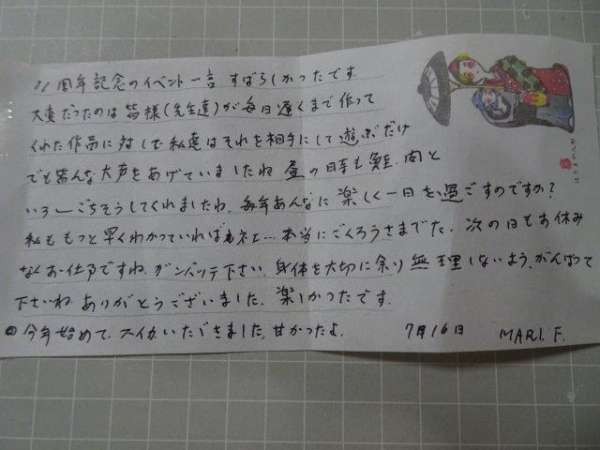 11周年記念のイベント一言 すばらしかったです
大変だったのは皆様(先生達)が毎日遅くまで作って
くれた作品に対して私達はそれを相手にして遊ぶだけ
でも皆んな大声をあげていましたね 昼の時も鮭、肉と
いろ〳〵ごちそうしてくれましたね、毎年あんなに楽しく一日を過ごすのですか?
私ももっと早くわかっていればネェ…本当にごくろうさまでした、次の日もお休み
なくお仕事ですね、ガンバッテ下さい、身体を大切に余り無理しないよう、がんばって
下さいね ありがとうございました、楽しかったです、
今年始めて、スイカいただきました、甘かったよ、 7月16日 MARI. F.